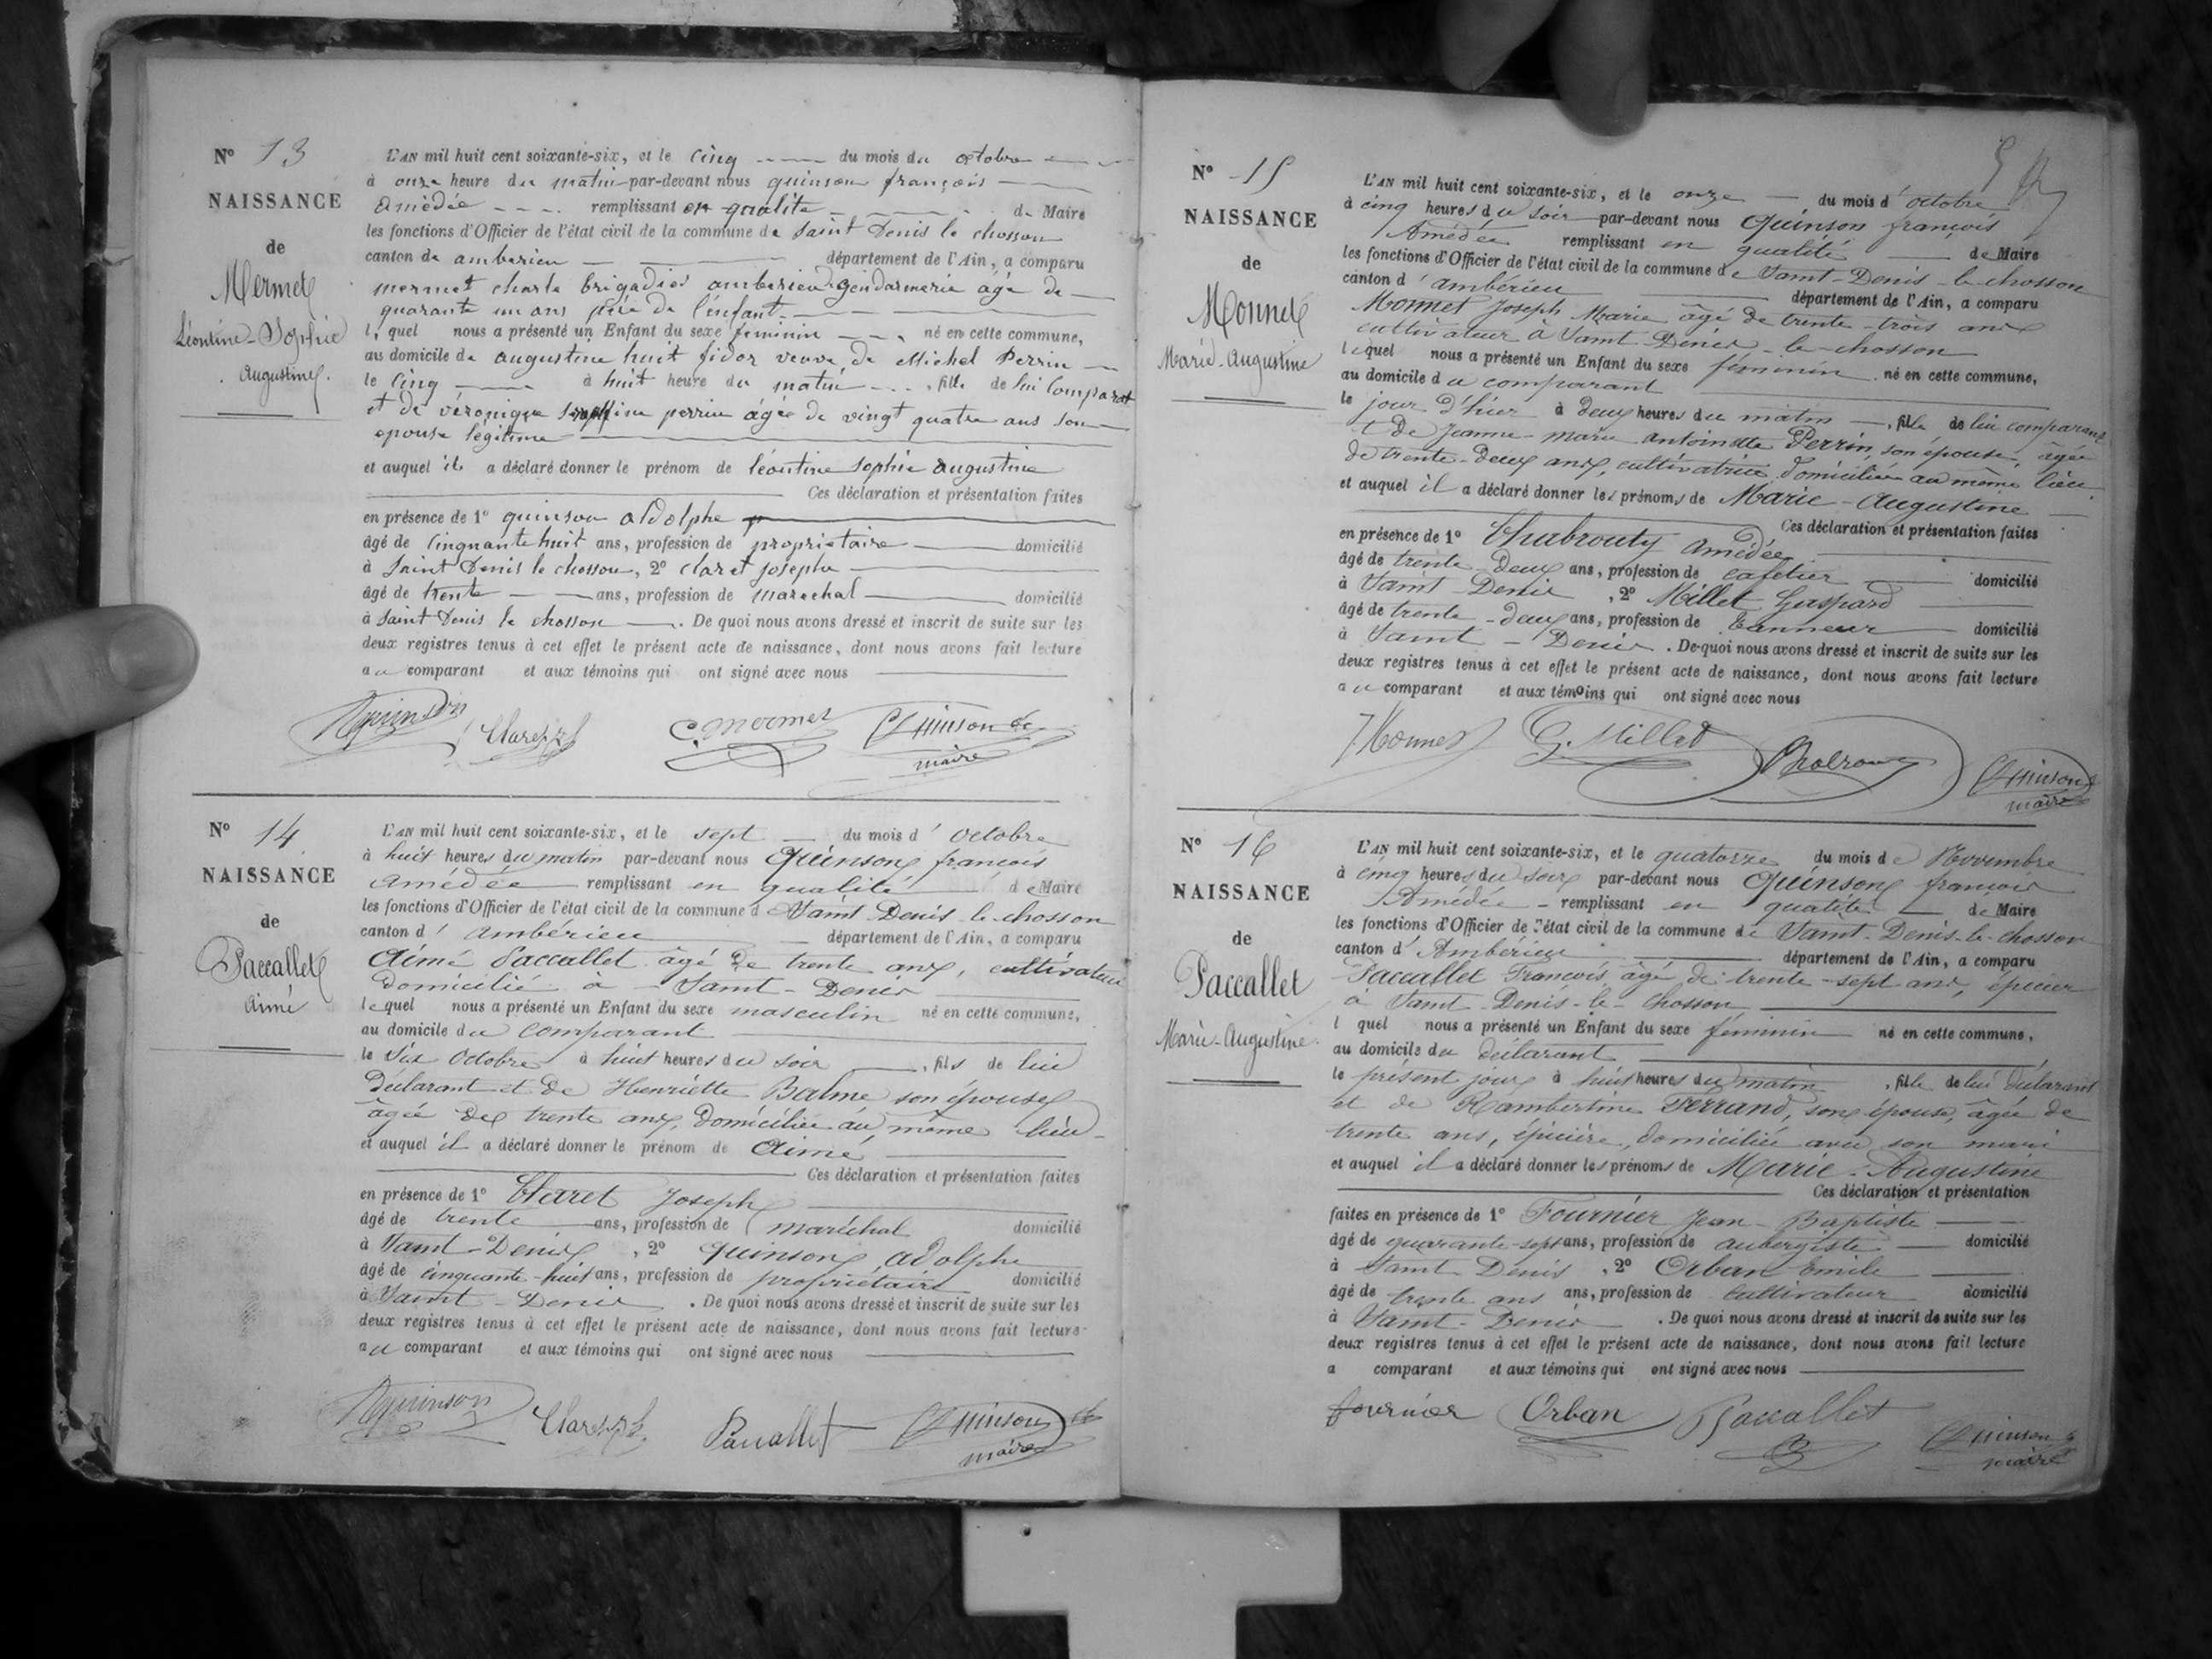 N° 13
NAISSANCE
de
Mermet
Léontine-Sophie
Augustine.
L'AN mil huit cent soixante-six, et le cinq du mois du octobre
à onze heure du matin par-devant nous quinson françois
Amédée remplissant en qualité de Maire
les fonctions d'Officier de l'état civil de la commune de Saint Denis le chosson
canton de amberieu département de l'Ain, a comparu
mermet charle brigadier amberieu gendarmerie âgé de
quarante un ans père de l'enfant
lequel nous a présenté un Enfant du sexe feminin né en cette commune,
au domicile de augustine huit fidor veuve de Michel Perrin
le cinq à huit heure du matin, fille de lui comparat
et de véronique perrin âgée de vingt quatre ans son
epouse légitime
et auquel il a déclaré donner le prénom de léontine sophie augustine
Ces déclaration et présentation faites
en présence de 1° quinson aldolphe
âgé de cinquante huit ans, profession de propriétaire domicilié
à Saint Denis le chosson, 2° claret joseph
âgé de trente ans, profession de marechal domicilié
à Saint Denis le chosson. De quoi nous avons dressé et inscrit de suite sur les
deux registres tenus à cet effet le présent acte de naissance, dont nous avons fait lecture
au comparant et aux témoins qui ont signé avec nous
Aquinson Claret C. Mermet Quinson
maire
N° 14
NAISSANCE
de
Paccallet
Aimé
L'AN mil huit cent soixante-six, et le sept du mois d'octobre
à huit heures du matin par-devant nous Quinson françois
Amédée remplissant en qualité de Maire
les fonctions d'Officier de l'état civil de la commune de Saint-Denis-le-chosson
canton d'ambérieu département de l'Ain, a comparu
Aimé Paccallet âgé de trente ans, cultivateur
domicilié à Saint-Denis
lequel nous a présenté un Enfant du sexe masculin né en cette commune,
au domicile du comparant
le six octobre à huit heures du soir, fils de lui
déclarant et de Henriette Balme son épouse
âgée de trente ans, domiciliée au même lieu
et auquel il a déclaré donner le prénom de Aimé
Ces déclaration et présentation faites
en présence de 1° Claret Joseph
âgé de trente ans, profession de maréchal domicilié
à Saint-Denis, 2° quinson adolphe
âgé de cinquante-huit ans, profession de propriétaire domicilié
à Saint-Denis. De quoi nous avons dressé et inscrit de suite sur les
deux registres tenus à cet effet le présent acte de naissance, dont nous avons fait lecture
au comparant et aux témoins qui ont signé avec nous
Aquinson Claret Paccallet Quinson
maire
N° 15
NAISSANCE
de
Monnet
Marie-Augustine
L'AN mil huit cent soixante-six, et le onze du mois d'octobre
à cinq heures du soir par-devant nous Quinson françois
Amédée remplissant en qualité de Maire
les fonctions d'Officier de l'état civil de la commune de Saint-Denis-le-chosson
canton d'ambérieu département de l'Ain, a comparu
Monnet Joseph Marie âgé de trente-trois ans
cultivateur à Saint-Denis-le-chosson
lequel nous a présenté un Enfant du sexe féminin né en cette commune,
au domicile du comparant
le jour d'hier à deux heures du matin, fille de lui comparant
et de Jeanne-marie antoinette Perrin, son épouse, âgée
de trente-deux ans, cultivatrice domiciliée au même lieu
et auquel il a déclaré donner les prénoms de Marie-Augustine
Ces déclaration et présentation faites
en présence de 1° Chabrouty Amédée
âgé de trente-deux ans, profession de cafetier domicilié
à Saint-Denis, 2° Millet Gaspard
âgé de trente-deux ans, profession de tanneur domicilié
à Saint-Denis. De quoi nous avons dressé et inscrit de suite sur les
deux registres tenus à cet effet le présent acte de naissance, dont nous avons fait lecture
au comparant et aux témoins qui ont signé avec nous
J. Monnet G. Millet Quinson
maire
N° 16
NAISSANCE
de
Paccallet
Marie-Augustine
L'AN mil huit cent soixante-six, et le quatorze du mois de Novembre
à cinq heures du soir par-devant nous Quinson françois
Amédée remplissant en qualité de Maire
les fonctions d'Officier de l'état civil de la commune de Saint-Denis-le-chosson
canton d'Ambérieu département de l'Ain, a comparu
Paccallet François âgé de trente-sept ans, épicier
à Saint-Denis-le-chosson
l quel nous a présenté un Enfant du sexe féminin né en cette commune,
au domicile du déclarant
le présent jour à huit heures du matin, fille de lui déclarant
et de Rambertine Ferrand, son épouse, âgée de
trente ans, épicière, domiciliée avec son mari
et auquel il a déclaré donner les prénoms de Marie-Augustine
Ces déclaration et présentation
faites en présence de 1° Fournier Jean-Baptiste
âgé de quarante-sept ans, profession de aubergiste domicilié
à Saint-Denis, 2° Orban Emile
âgé de trente ans ans, profession de cultivateur domicilié
à Saint-Denis. De quoi nous avons dressé et inscrit de suite sur les
deux registres tenus à cet effet le présent acte de naissance, dont nous avons fait lecture
a comparant et aux témoins qui ont signé avec nous
fournier Orban Paccallet Quinson
maire